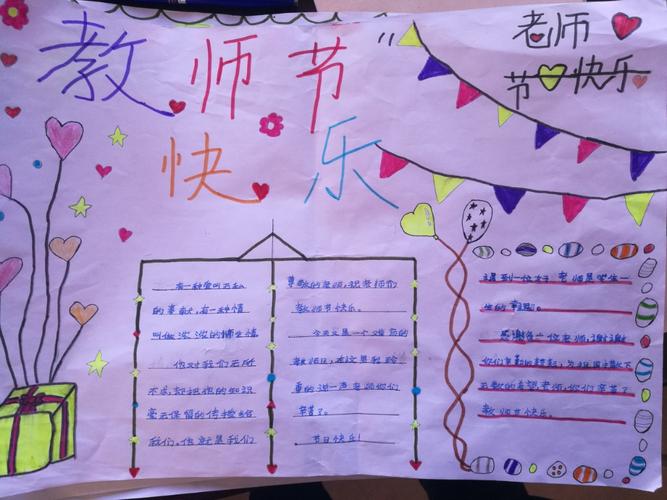 教师节
快乐
老师
节快乐
有一种爱叫无私
的奉献,有一种情
叫做浓浓的师生情
你对我们无所
不求,却把你的知识
毫无保留的传授给
我们,你就是我们
尊敬的老师,祝老师们
教师节快乐。
今天又是一个难忘的
教师日,在这里我郑
重的说一声老师你们
辛苦了。
节日快乐!
遇到一位好老师是学生一
生的幸运。
感谢每一位老师,谢谢
你们辛勤的耕耘,为祖国播下
无数的希望,老师,你们辛苦了
教师节快乐。